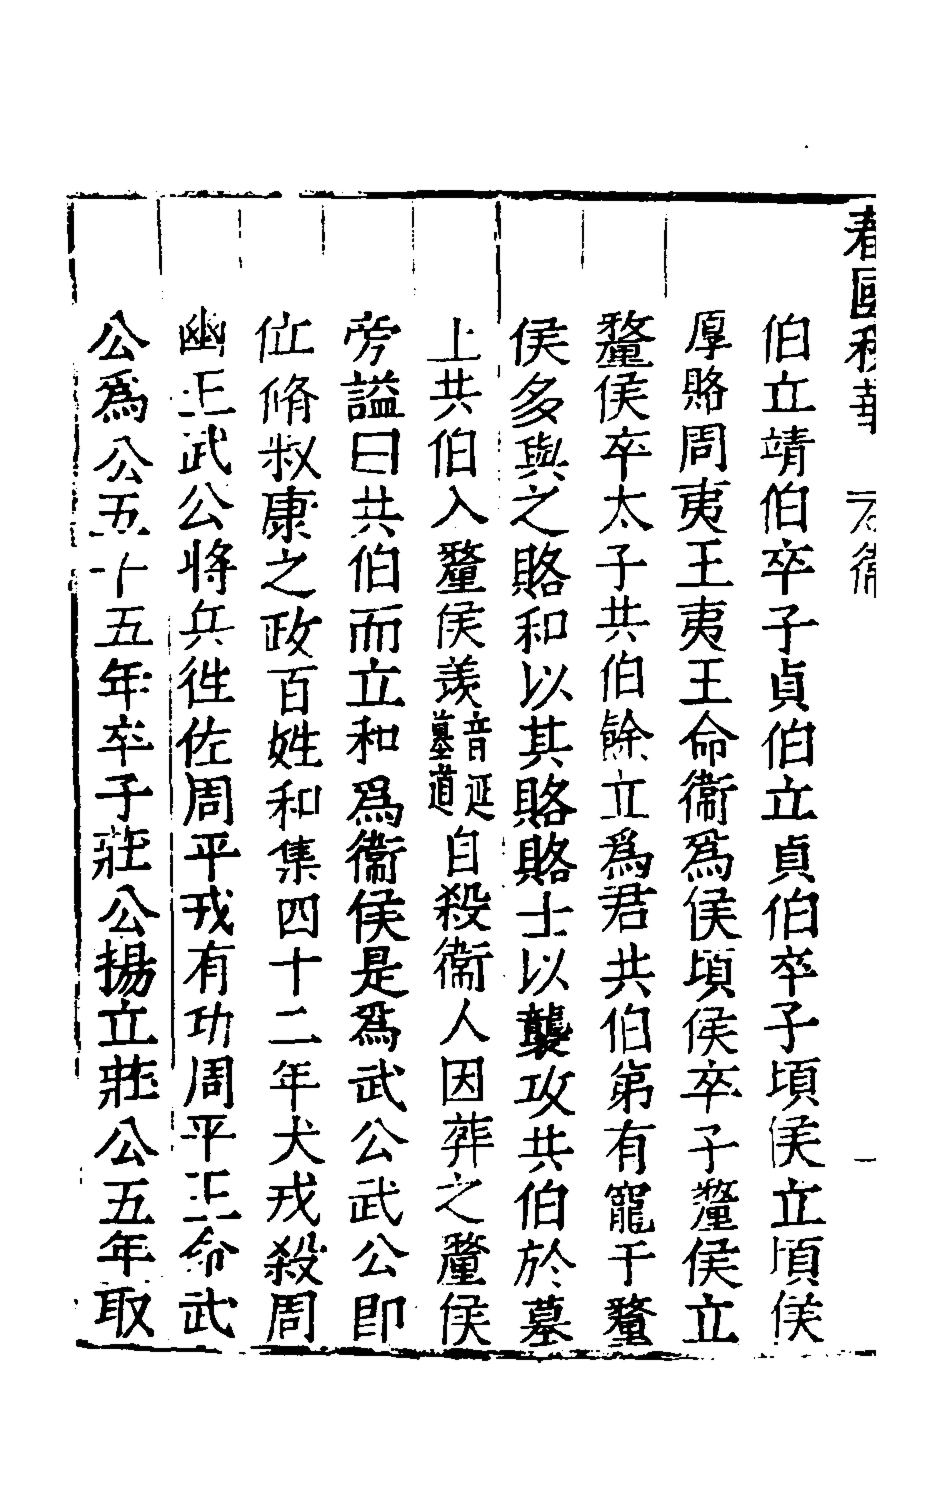 伯立靖伯卒子貞伯立貞伯卒子頃侯立頃侯
厚賂周夷王夷王命衞爲侯頃侯卒子釐侯立
釐侯卒太子共伯餘立爲君共伯第有寵于釐
侯多與之賂和以其賂賂士以襲攻共伯於墓
上共伯入釐侯羨音延墓道自殺衞人因葬之釐侯
旁謚曰共伯而立和爲衞侯是爲武公武公即
位脩叔康之政百姓和集四十二年犬戎殺周
幽王武公將兵徃佐周平戎有功周平王命武
公爲公五十五年卒子莊公揚立莊公五年取